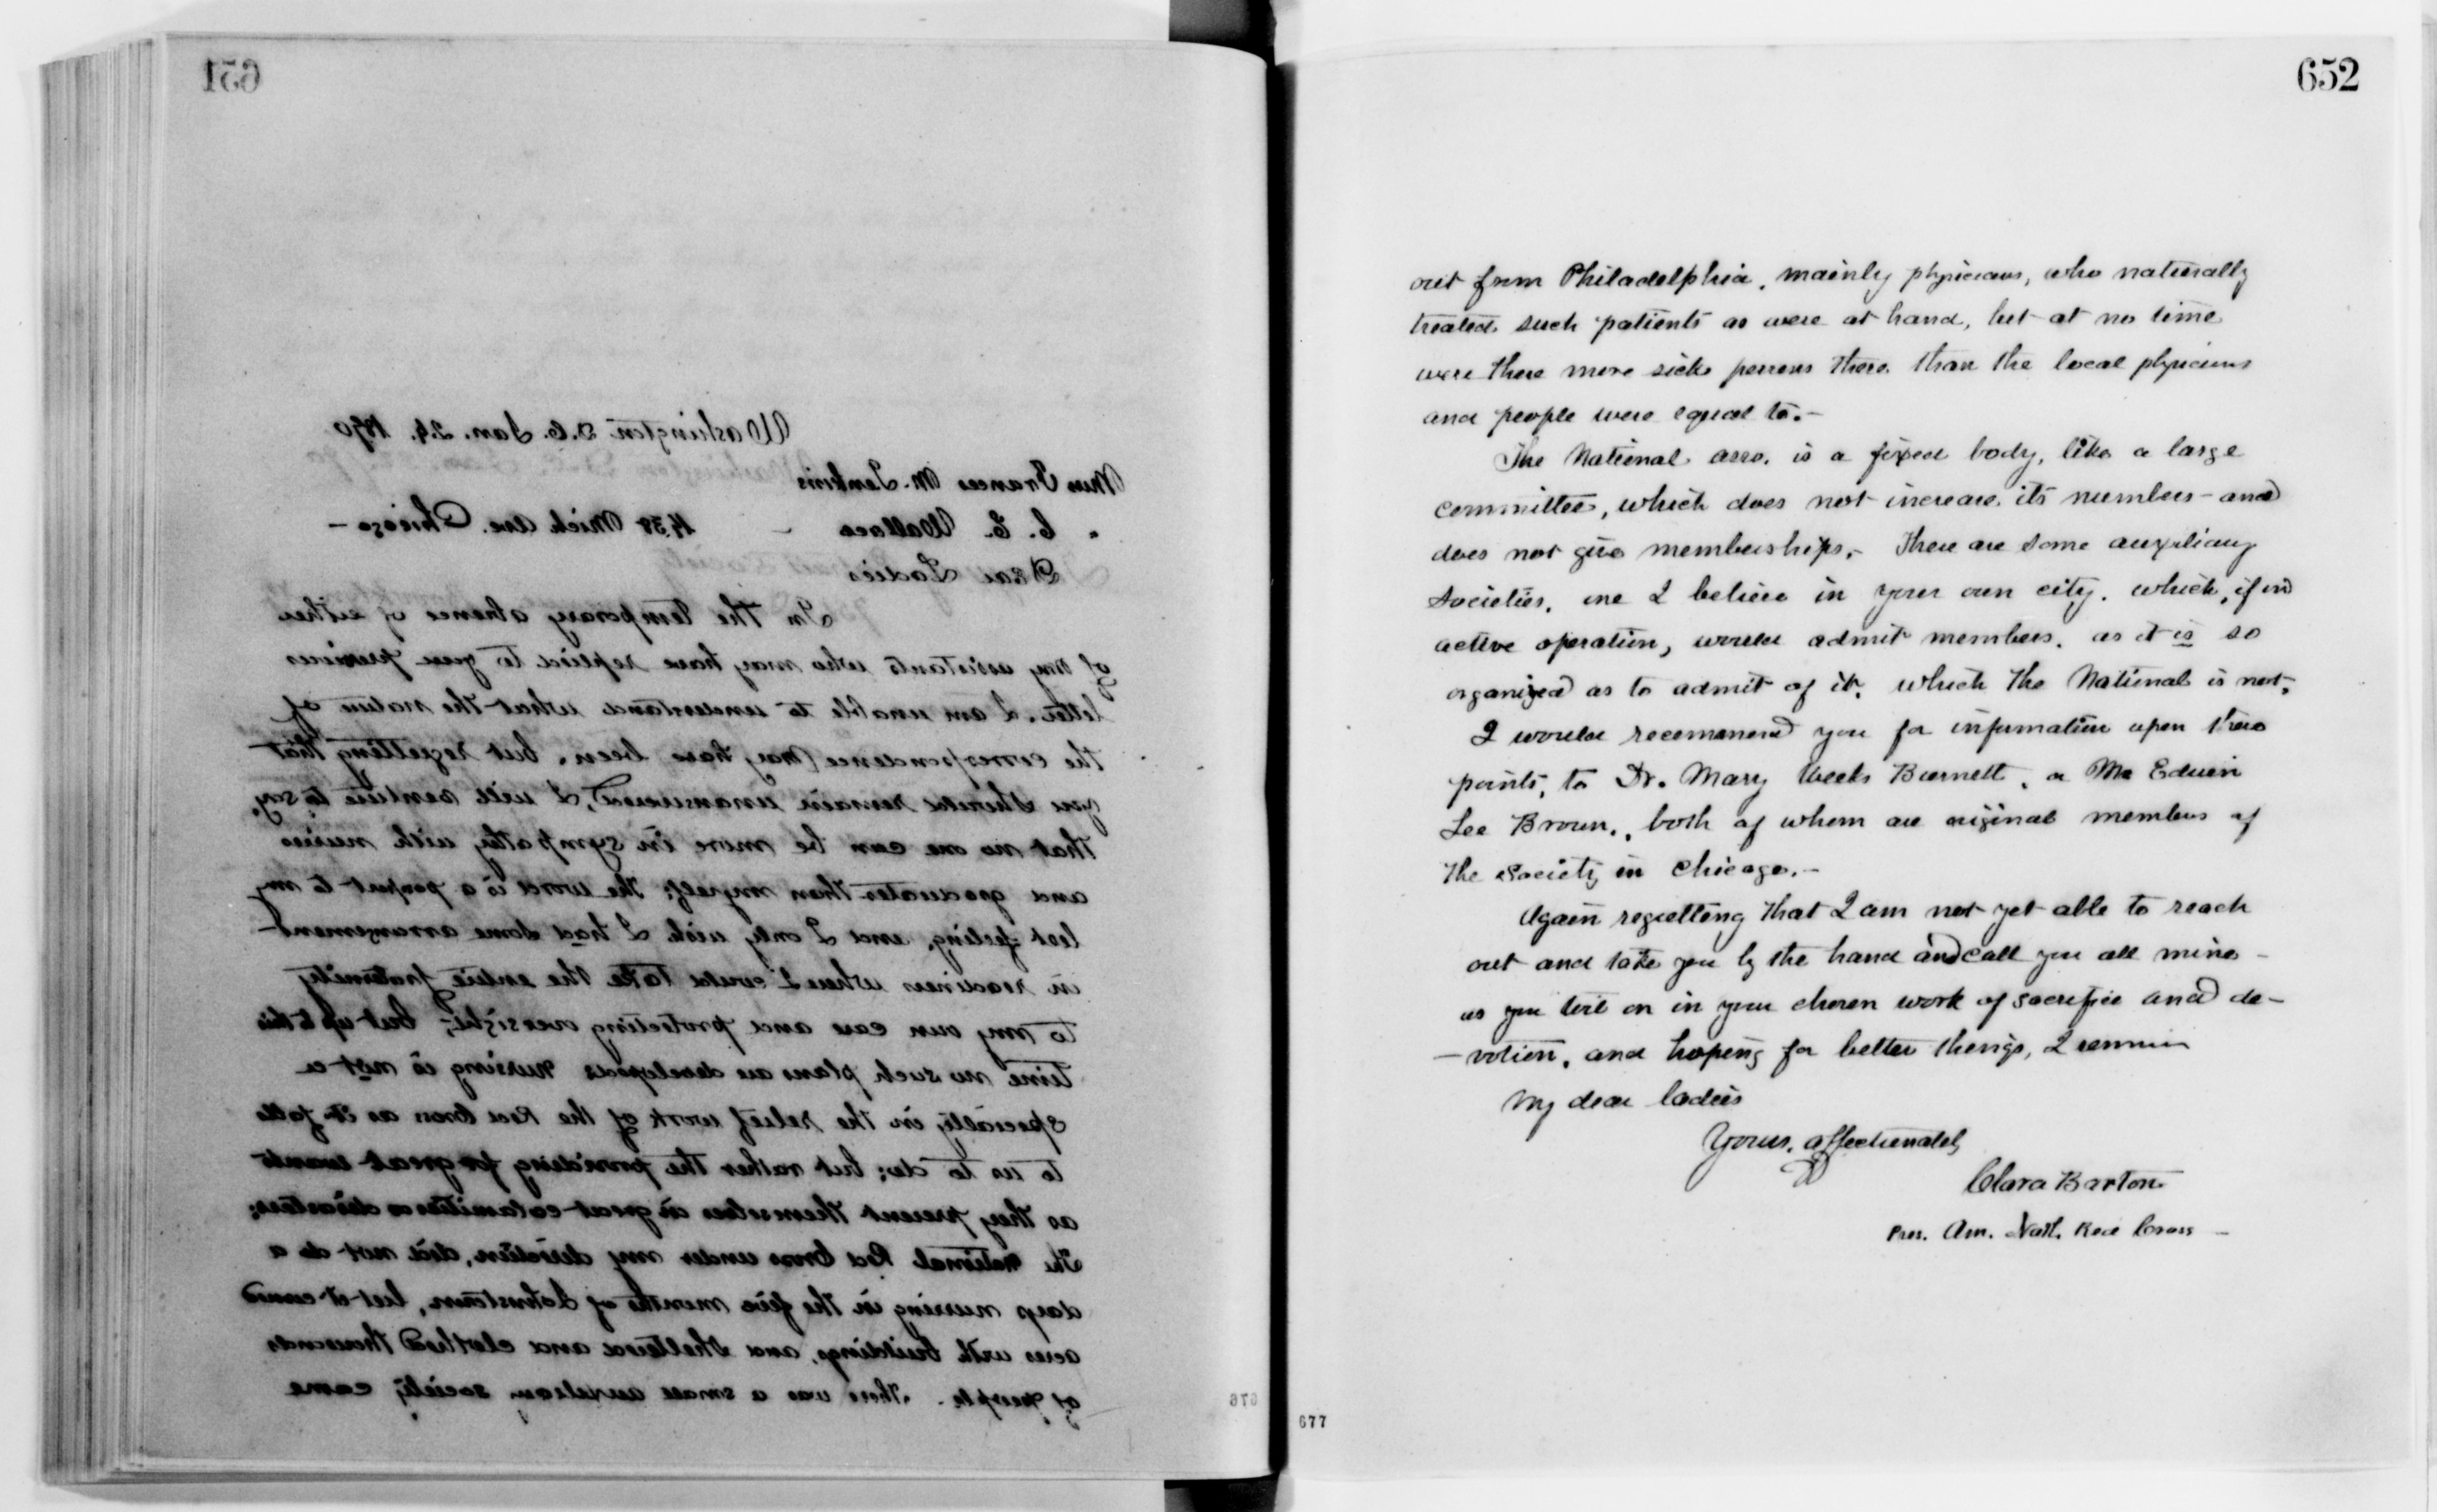 651
Washington D.C. Jan. 24. 1890
Miss Frances M. Jenkins
" C. E. Wallace - 1438 Mich Ave. Chicago -
Dear Ladies
In the temporary absence of either
of my assistants who may have replied to your previous
letter, I am unable to understand what the nature of
the correspondence may have been, but regretting that
you should remain unanswered, I will venture to say,
that no one can be more in sympathy with nurses
and graduates than myself; the word is a passport to my
best feeling, and I only wish I had some arrangement
in readiness where I could take the entire fraternity
to my own care and protecting oversight; but up to this
time no such plans are developed nursing is not a
specialty in the relief work of the Red Cross as it falls
to us to do; but rather the providing for great wants
as they present themselves in great calamities or disasters;
The National Red Cross under my direction, did not do a
days nursing in the five months of Johnstown, but it covered
acres with buildings, and sheltered and clothed thousands
of people. - There was a small auxiliary society came
676
652
out from Philadelphia, mainly physicians, who naturally
treated such patients as were at hand, but at no time
were there more sick persons there than the local physicians
and people were equal to. -
The National asso. is a fixed body, like a large
committee, which does not increase its numbers - and
does not give memberships. - There are some auxiliary
societies, one I believe in your own city. which, if in
active operation, would admit members, as it is so
organized as to admit of it, which the National is not.
I would recommend you for information upon these
points, to Dr. Mary Weeks Burnett, or Mr Edwin
Lee Brown., both of whom are original members of
the society in Chicago. -
Again regretting that I am not yet able to reach
out and take you by the hand and call you all mine -
as you toil on in your chosen work of sacrifice and de-
-votion, and hoping for better things, I remain
My dear ladies
Yours, affectionately
Clara Barton
Pres. Am. Natl. Red Cross -
677